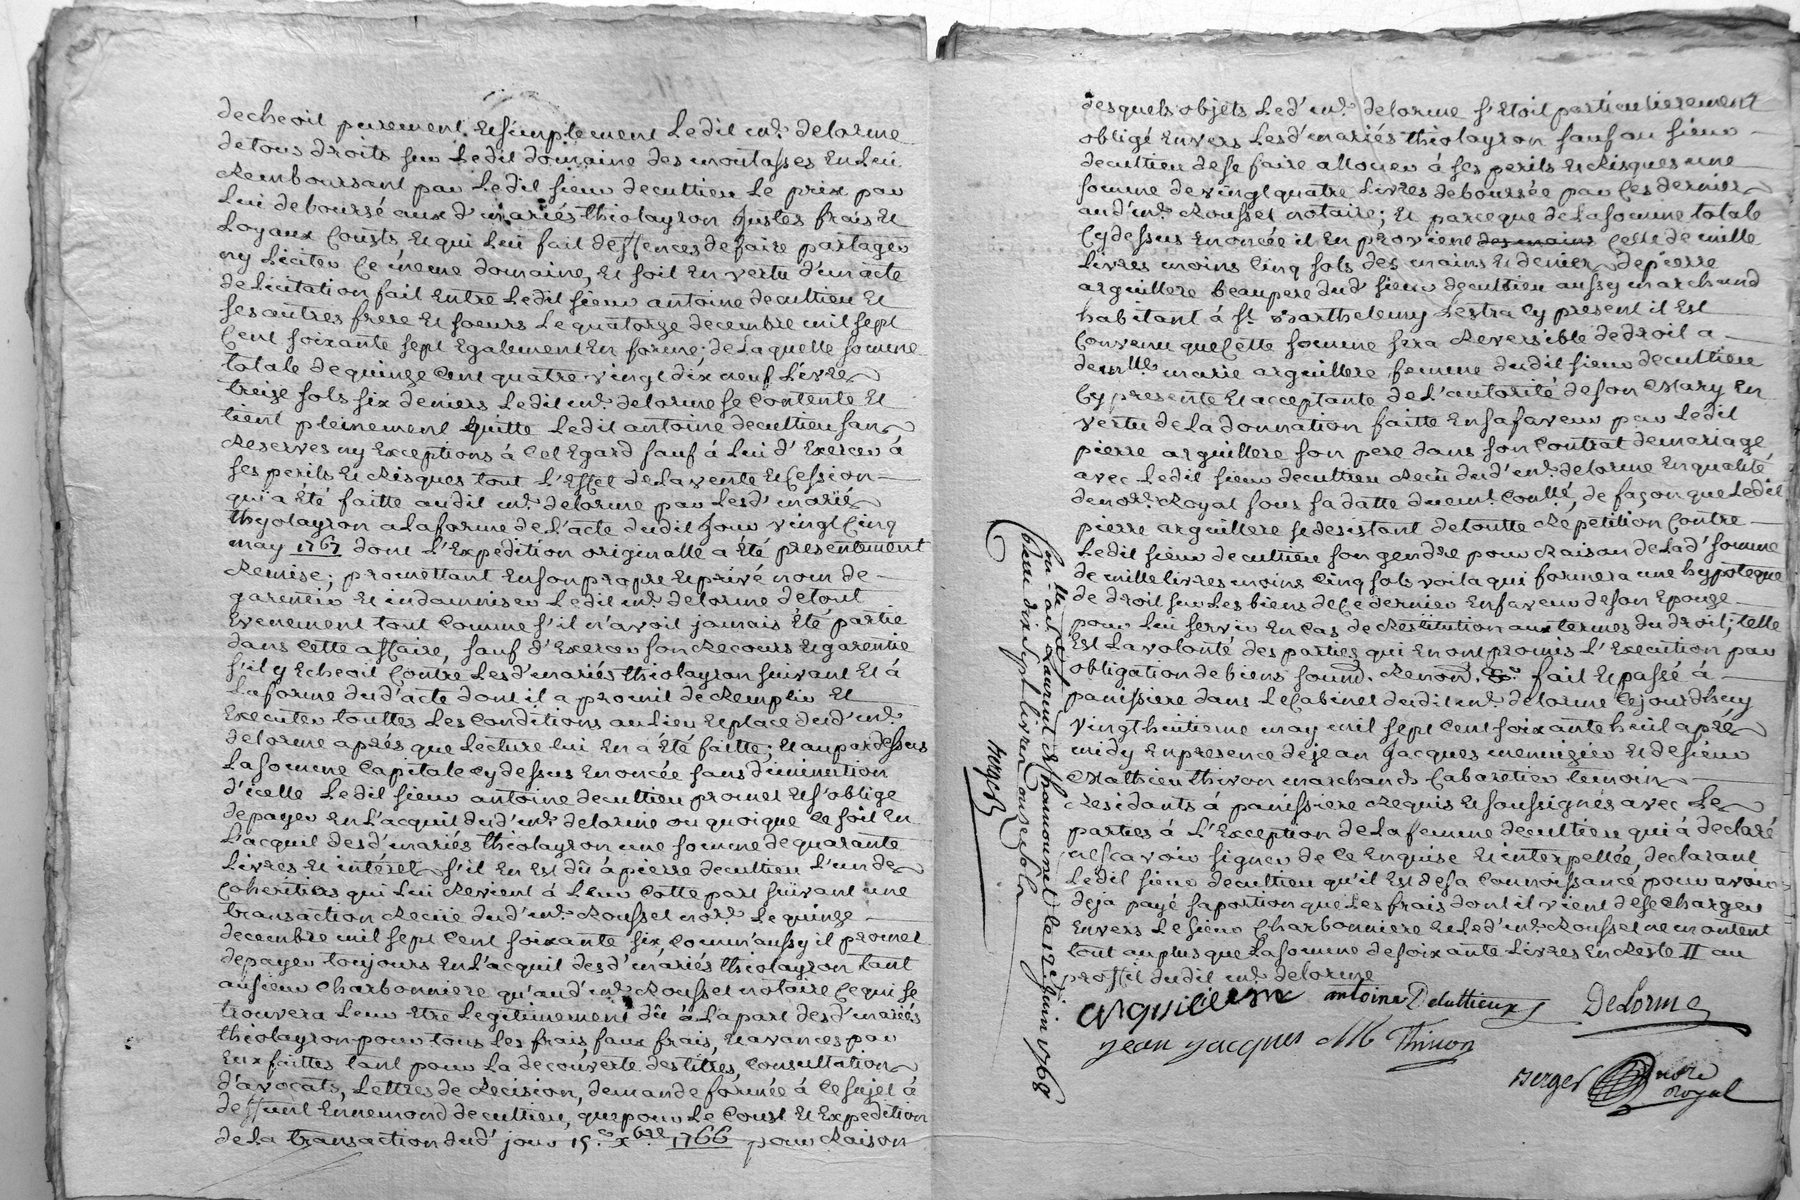 decheoit purement et simplement Ledit me. delorme
de tous droits sur Ledit domaine des montasses En Lui
Remboursant par Ledit sieur decultieu Le prix par
Lui deboursé aux d' mariés thiolayron justes frais et
Loyaux Cousts, et qui Lui fait deffences de faire partager
ny liciter Ce même domaine, et soit En vertu d'un acte
de licitation fait Entre Ledit sieur antoine decultieu et
ses autres frere et soeurs Le quatorze decembre mil sept
Cent soixante sept Egalement En forme; de Laquelle somme
totale de quinze Cent quatre vingt dix neuf Livre
treize sols six deniers Ledit me. delorme se Contente et
tient pleinement quitte Ledit antoine decultieu san
Reserves ny Exceptions à Cet Egard sauf à Lui d'Exercer à
ses perils et Risques tout L'Effet de La vente et Cession
qui a Été faitte audit me. delorme par Lesd' marié
thiolayron a La forme de L'acte dudit jour vingt Cinq
may 1767 dont L'Expedition originalle a Été presentement
Remise; promettant En son propre et privé nom de
garentir et indamniser Ledit me. delorme de tout
Evenement tout Comme s'il n'avoit jamais Été partie
dans Cette affaire, sauf d'Exercer son Recours et garentie
s'il y Echeoit Contre Lesd' mariés thiolayron suivant et à
La forme dud' acte dont il a promit de Remplir et
Executer touttes Les Conditions au Lieu et place dud' me.
delorme aprés que Lecture lui En a Été faitte; et au par dessus
La somme Capitale Cy dessus Enoncée sans diminution
d'icelle Ledit sieur antoine decultieu promet et s'oblige
de payer En L'acquit dud' me. delorme ou quoique Ce soit En
L'acquit desd' mariés thiolayron une somme de quarante
Livres et intéret s'il En Est dû à pierre decultieu L'un de
Coheritiers qui Lui Revient à Leur Cotte part suivant une
transaction Recüe dud' me. Rousset nore. Le quinze
decembre mil sept Cent soixante six Comm'aussy il promet
de payer toujours En L'acquit desd' mariés thiolayron tant
au sieur Charbonniere qu'aud' me. Rousset notaire Ce qui se
trouvera Leur Etre Legitimement dû à La part desd' mariés
thiolayron pour tous Les frais faux frais, et avances par
Eux faittes tant pour La decouverte des titres, Consultation
d'avocats, Lettres de Recision, demande formée à Ce sujet à
deffunt Ennemond decultieu, que pour Le Coust et Expedition
de La transaction dud' jour 15e. xbre 1766 pour Raison
desquels objets Led' me. delorme s'Etoit particulierement
obligé Envers Lesd' mariés thiolayron sauf au sieur
decultieu de se faire allouer à ses perils et Risques une
somme de vingt quatre Livres deboursée par Ces dernier
aud' me. Rousset notaire; et parceque de La somme totale
Cy dessus Enoncée il En provient des mains Celle de mille
Livres moins Cinq sols des mains et denier de pierre
arguillere Beaupere dud' sieur decultieu aussy marchand
habitant à St. Barthelemy Lestra Cy present il Est
Convenu que Cette somme sera Reversible de droit a
demlle. marie arguillere femme dudit sieur decultieu
Cy presente et acceptante de L'autorité de son Mary En
vertu de La donnation faitte En sa faveur par Ledit
pierre arguillere son pere dans son Contrat de mariage
avec Ledit sieur decultieu Reçu dud' me. delorme En qualité
de nore. Royal sous sa datte duemt. Conllé, de façon que Ledit
pierre arguillere se desistant de toutte Repetition Contre
Ledit sieur decultieu son gendre pour Raison de Lad' somme
de mille livres moins Cinq sols voila qui formera une hypoteque
de droit sur Les biens de Ce dernier En faveur de son Epouze
pour Lui servir En Cas de Restitution aux termes du droit; telle
Est La volonté des parties qui En ont promis L'Execution par
obligation de biens soumd. Renond. &a. fait et passé à
panissiere dans Le Cabinet dudit me. delorme Cejourdhuy
vingt huitieme may mil sept Cent soixante huit aprè
midy En presence de jean jacques mennizier et de sieur
Mathieu thivon marchand Cabaretier temoin
Residants à panissiere Requis et soussignés avec Le
parties à L'Exception de La femme decultieu qui à declaré
ne sçavoir signer de Ce Enquise et interpellée, declarant
Ledit sieur decultieu qu'il Est de sa Connoissance pour avoir
deja payé sa portion que Les frais dont il vient de se Charger
Envers Le sieur Charbonniere et Led' me. Rousset ne montent
tout au plus que La somme de soixante Livres En Reste II au
proffit dudit me. delorme
Arguillere antoine Decultieux DeLorme
jean jacques M Thivon
Berger nore Royal
Con lle et a st Laurent de chamousset le 12e juin 1768
Reçu dix sept livres onze sols
Berger